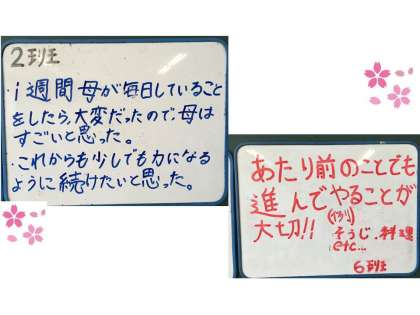 2班
・1週間母が毎日していること
をしたら、大変だったので、母は
すごいと思った。
・これからも少しでも力になる
ように続けたいと思った。
あたり前のことでも
進んでやることが
大切!! (例) そうじ.料理
etc...
6班